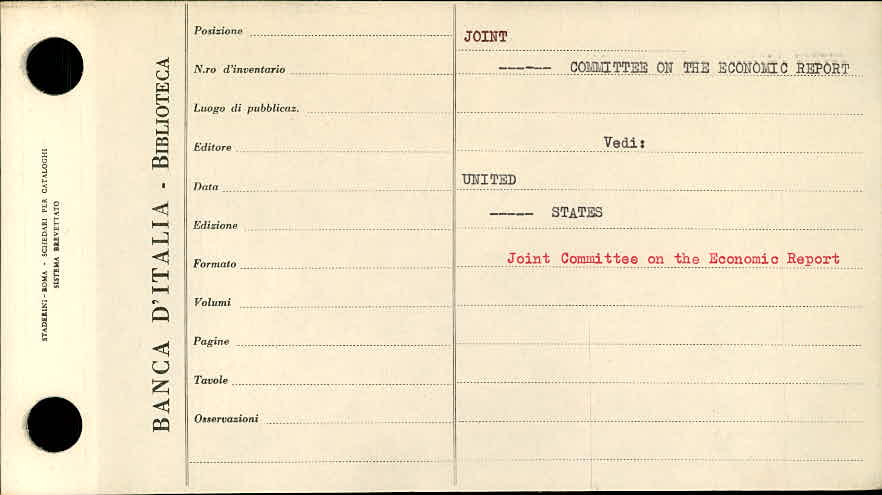 STADERINI - ROMA - SCHEDARI PER CATALOGHI
SISTEMA BREVETTATO
BANCA D'ITALIA - BIBLIOTECA
Posizione
N.ro d'inventario
Luogo di pubblicaz.
Editore
Data
Edizione
Formato
Volumi
Pagine
Tavole
Osservazioni
JOINT
------ COMMITTEE ON THE ECONOMIC REPORT
Vedi:
UNITED
----- STATES
Joint Committee on the Economic Report